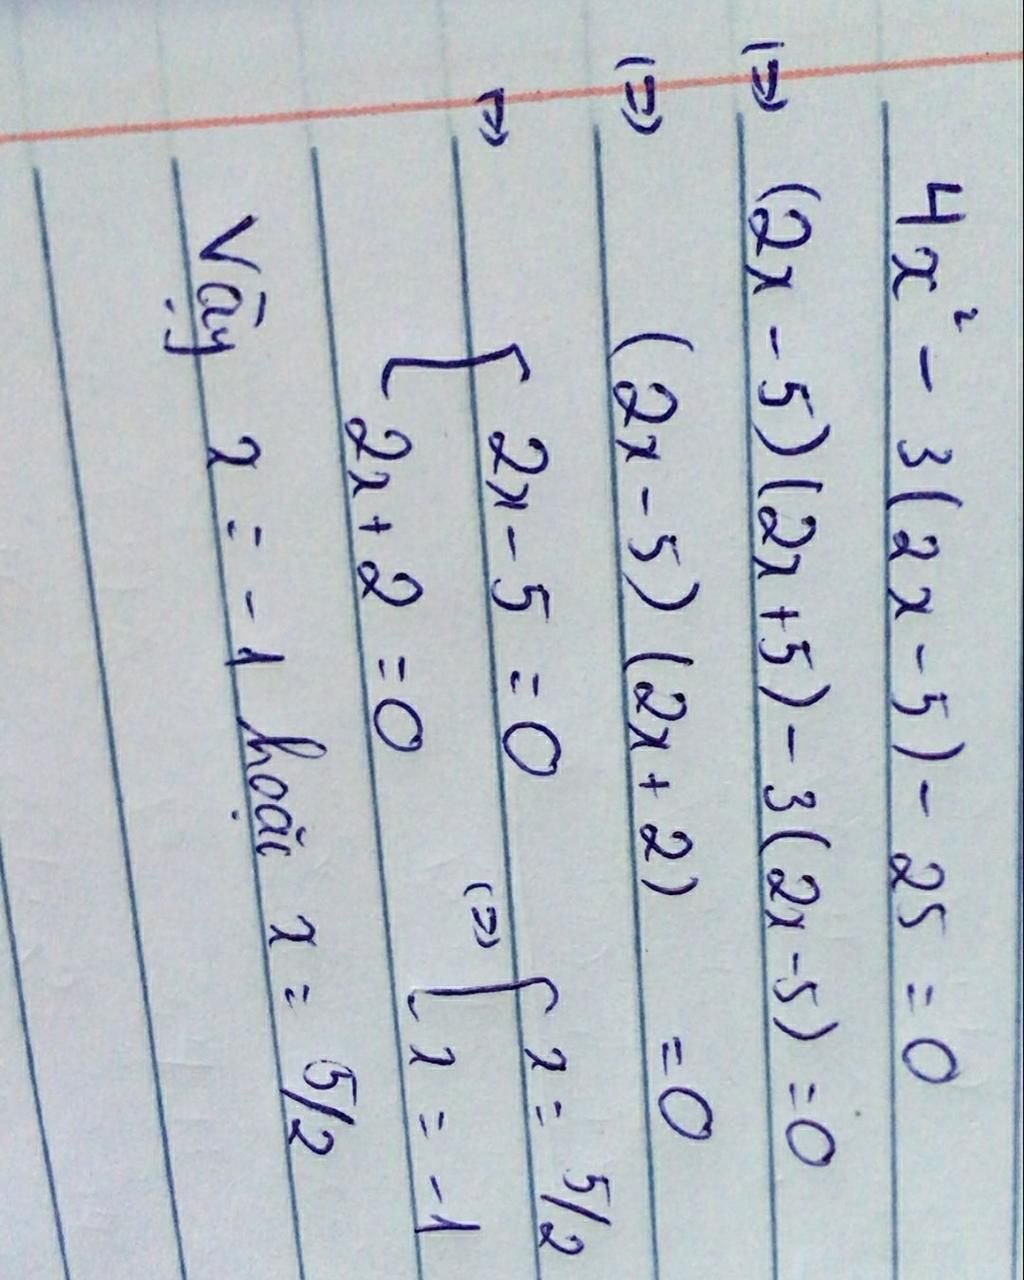 4x² - 3(2x - 5) - 25 = 0
(=) (2x - 5)(2x + 5) - 3(2x - 5) = 0
(=) (2x - 5)(2x + 2) = 0
(=) [ 2x - 5 = 0 (=) [ x = 5/2
2x + 2 = 0 x = -1
Vậy x = -1 hoặc x = 5/2